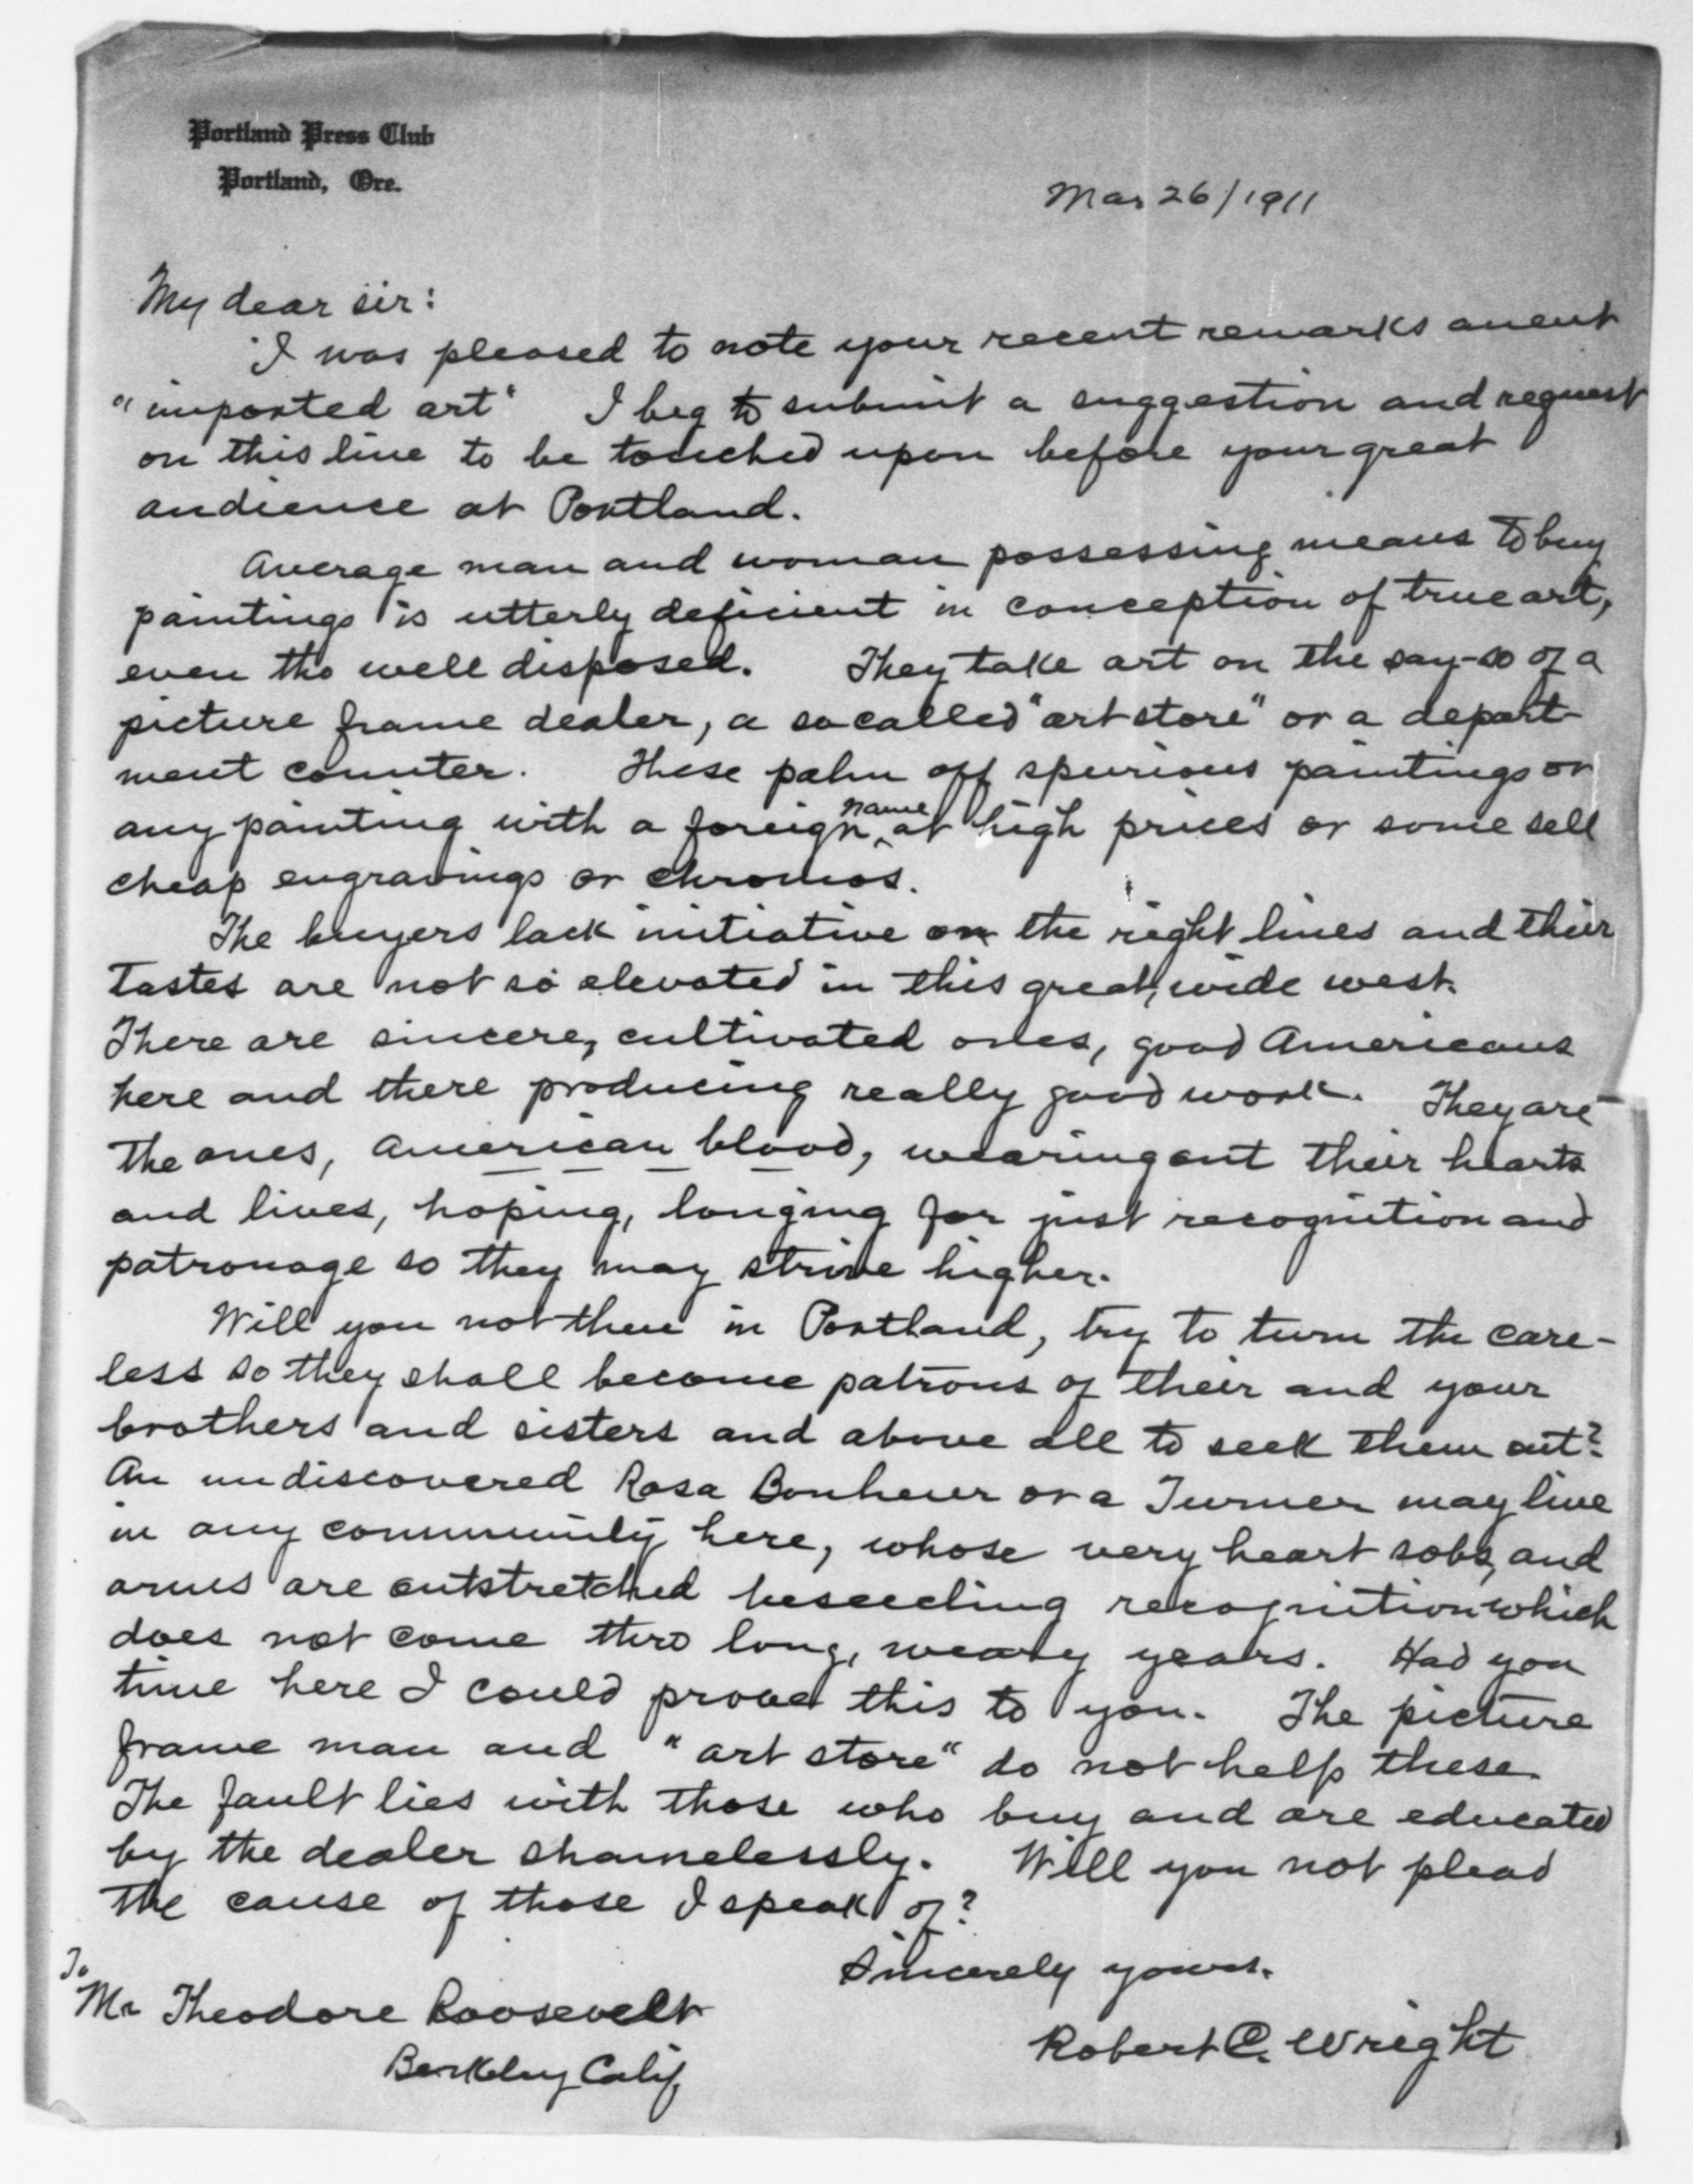 Portland Press Club
Portland, Ore.
Mar 26/1911
My dear sir:
I was pleased to note your recent remarks anent
"imported art" I beg to submit a suggestion and request
on this line to be touched upon before your great
audience at Portland.
Average man and woman possessing means to buy
paintings is utterly deficient in conception of true art,
even tho well disposed. They take art on the say-so of a
picture frame dealer, a so called "art store" or a depart-
ment counter. These palm off spurious paintings or
any painting with a foreign name at high prices or some sell
cheap engravings or chromos.
The buyers lack initiative on the right lines and their
tastes are not so elevated in this great, wide west.
There are sincere, cultivated ones, good Americans
here and there producing really good work. They are
the ones, American blood, wearing out their hearts
and lives, hoping, longing for just recognition and
patronage so they may strive higher.
Will you not then in Portland, try to turn the care-
less so they shall become patrons of their and your
brothers and sisters and above all to seek them out?
An undiscovered Rosa Bonheur or a Turner may live
in any community here, whose very heart sobs, and
arms are outstretched beseeching recognition which
does not come thro long, weary years. Had you
time here I could prove this to you. The picture
frame man and "art store" do not help these.
The fault lies with those who buy and are educated
by the dealer shamelessly. Will you not plead
the cause of those I speak of?
Sincerely yours.
Robert C. Wright
To
Mr Theodore Roosevelt
Berkeley Calif